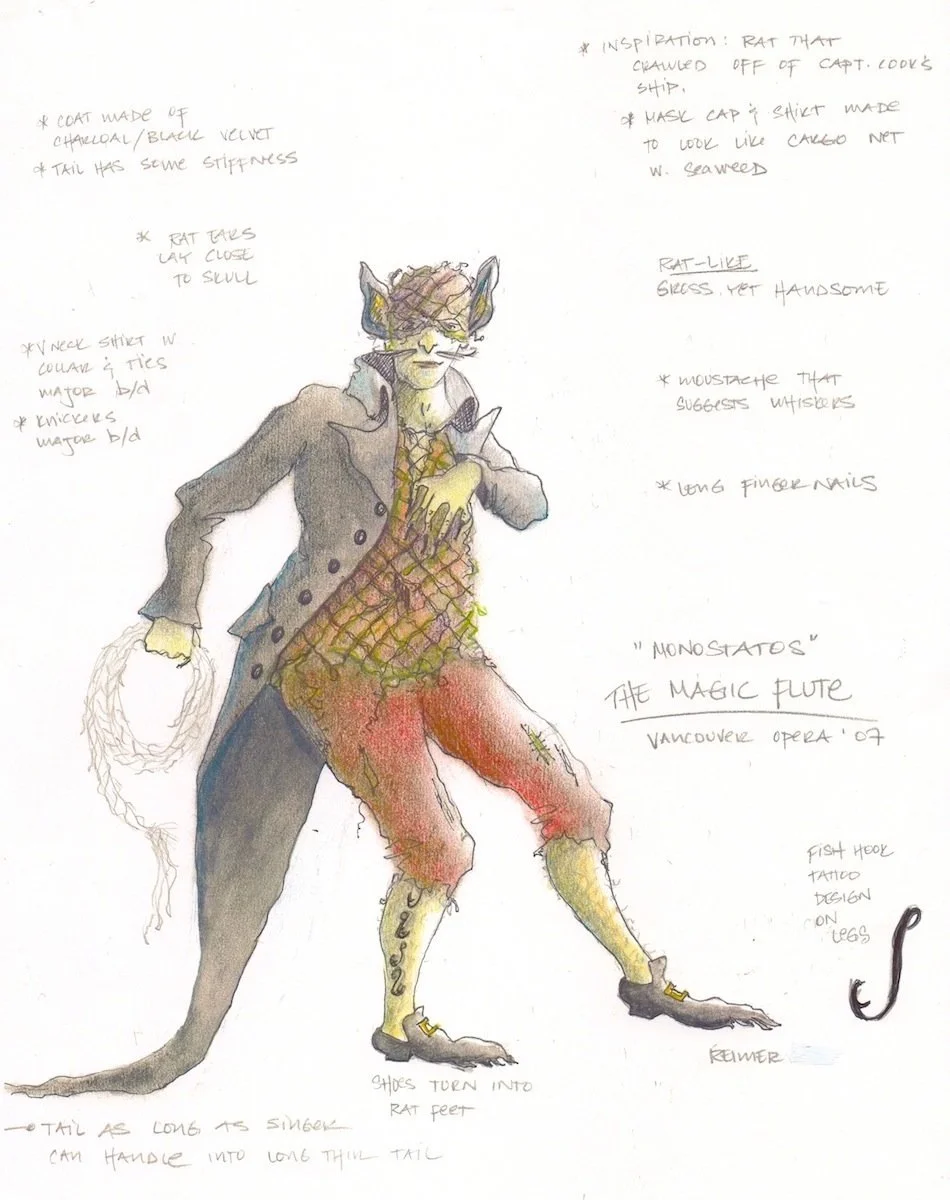 * INSPIRATION: RAT THAT
CRAWLED OFF OF CAPT. COOK'S
SHIP.
* MASK CAP & SHIRT MADE
TO LOOK LIKE CARGO NET
W. SEAWEED
* COAT MADE OF
CHARCOAL/BLACK VELVET
* TAIL HAS SOME STIFFNESS
* RAT EARS
LAY CLOSE
TO SKULL
RAT-LIKE
GROSS YET HANDSOME
* V NECK SHIRT W
COLLAR & TIES
MAJOR b/d
* KNICKERS
MAJOR b/d
* MOUSTACHE THAT
SUGGESTS WHISKERS
* LONG FINGER NAILS
"MONOSTATOS"
THE MAGIC FLUTE
VANCOUVER OPERA '07
FISH HOOK
TATTOO
DESIGN
ON
LEGS
REIMER
SHOES TURN INTO
RAT FEET
TAIL AS LONG AS SINGER
CAN HANDLE INTO LONG THIN TAIL